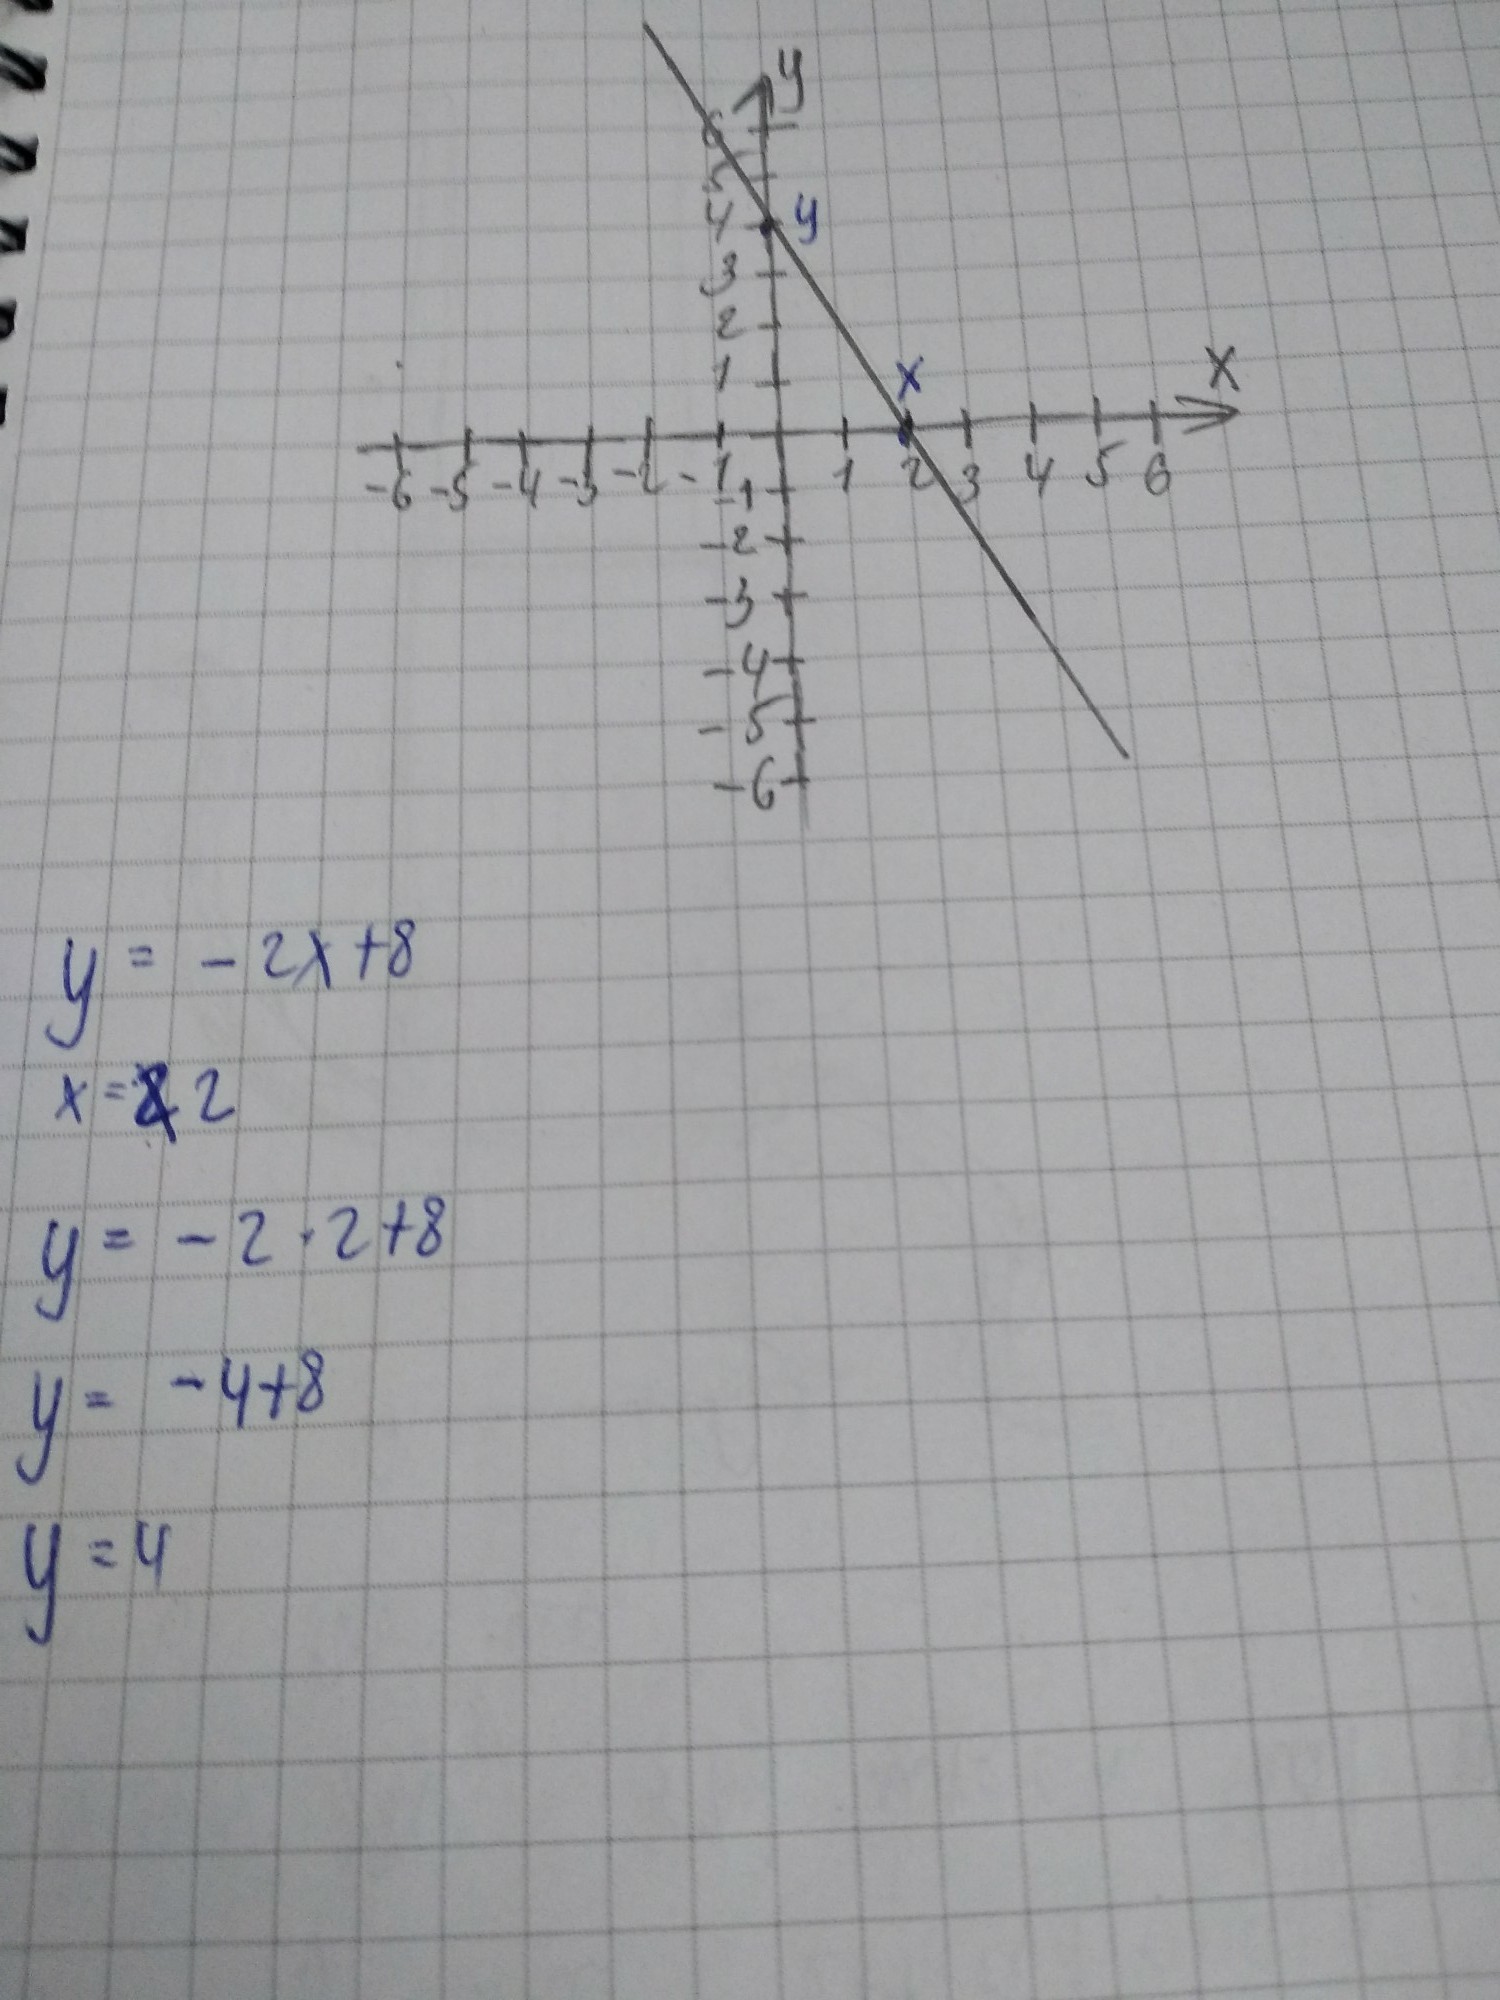 y
6
5
4 y
3
2
1
x X
-6 -5 -4 -3 -2 -1 1 2 3 4 5 6
-1
-2
-3
-4
-5
-6
y = -2x+8
x = 2
y = -2·2+8
y = -4+8
y = 4